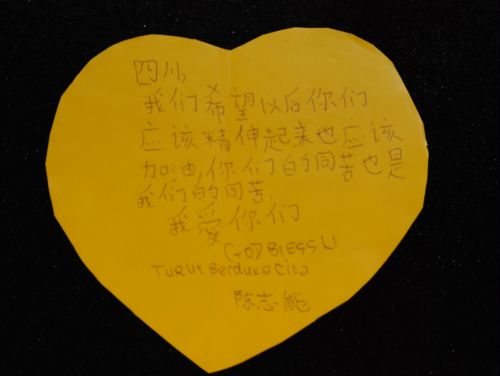 四川,
我们希望以后你们
应该精伸起来也应该
加油,你们的同苦也是
我们的同苦,
我爱你们
GOD BLESS U
Turut Berduka Cita
陈志能